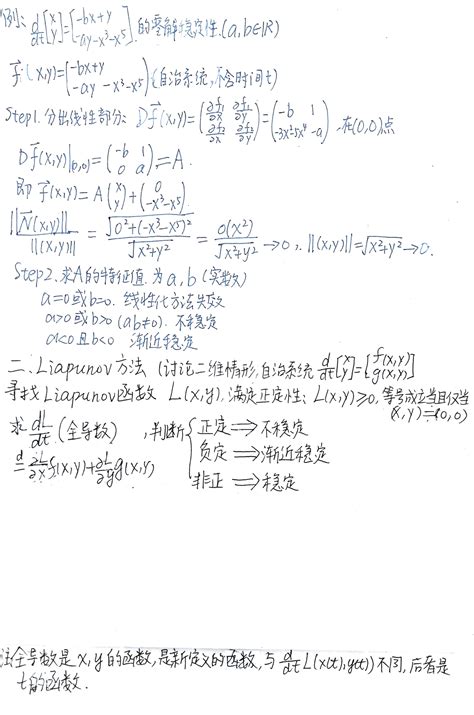 例: d/dt[x y]=[-bx+y -ay-x³-x⁵] 的零解稳定性.(a,b∈ℝ)
f⃗(x,y)=(-bx+y -ay-x³-x⁵) (自治系统,不含时间t)
Step1.分出线性部分: Df⃗(x,y)=(∂f₁/∂x ∂f₁/∂y ∂f₂/∂x ∂f₂/∂y)=(-b 1 -3x²-5x⁴ -a) .在(0,0)点
Df⃗(x,y)|(0,0)=(-b 1 0 a)=A.
即 f⃗(x,y)=A(x y)+(0 -x³-x⁵)
||N⃗(x,y)||/||(x,y)|| = √(0²+(-x³-x⁵)²)/√(x²+y²) = o(x²)/√(x²+y²) →0, ||(x,y)||=√(x²+y²)→0.
Step2.求A的特征值.为a,b(实数)
a=0或b=0. 线性化方法失效
a>0或b>0 (ab≠0). 不稳定
a<0且b<0 渐近稳定
二、Liapunov方法 (讨论二维情形,自治系统 d/dt[x y]=[f(x,y) g(x,y)]
寻找Liapunov函数 L(x,y),满足正定性: L(x,y)≥0,等号成立当且仅当
(x,y)=(0,0)
求 dL/dt (全导数) ,判断{正定⟹不稳定
≜∂L/∂x f(x,y)+∂L/∂y g(x,y) 负定⟹渐近稳定
非正⟹稳定
注:全导数是x,y的函数,是新定义的函数,与 d/dt L(x(t),y(t)) 不同,后者是
t的函数.